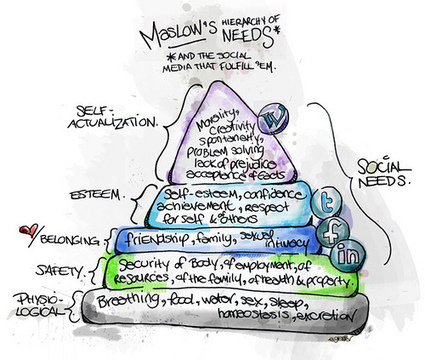 MASLOW'S HIERARCHY OF NEEDS*
*AND THE SOCIAL
MEDIA THAT FULFILL 'EM.
SELF-
ACTUALIZATION.
Morality,
creativity
spontaneity,
problem solving
lack of prejudice
acceptance of facts
W
ESTEEM.
Self-esteem, confidence
achievement, respect
for self & others
t
SOCIAL
NEEDS.
BELONGING
friendship, family, sexual
intimacy
f
in
SAFETY.
Security of Body, of employment, of
resources, of the family, of health & property.
PHYSIO-
LOGICAL
Breathing, food, water, sex, sleep,
homeostasis, excretion